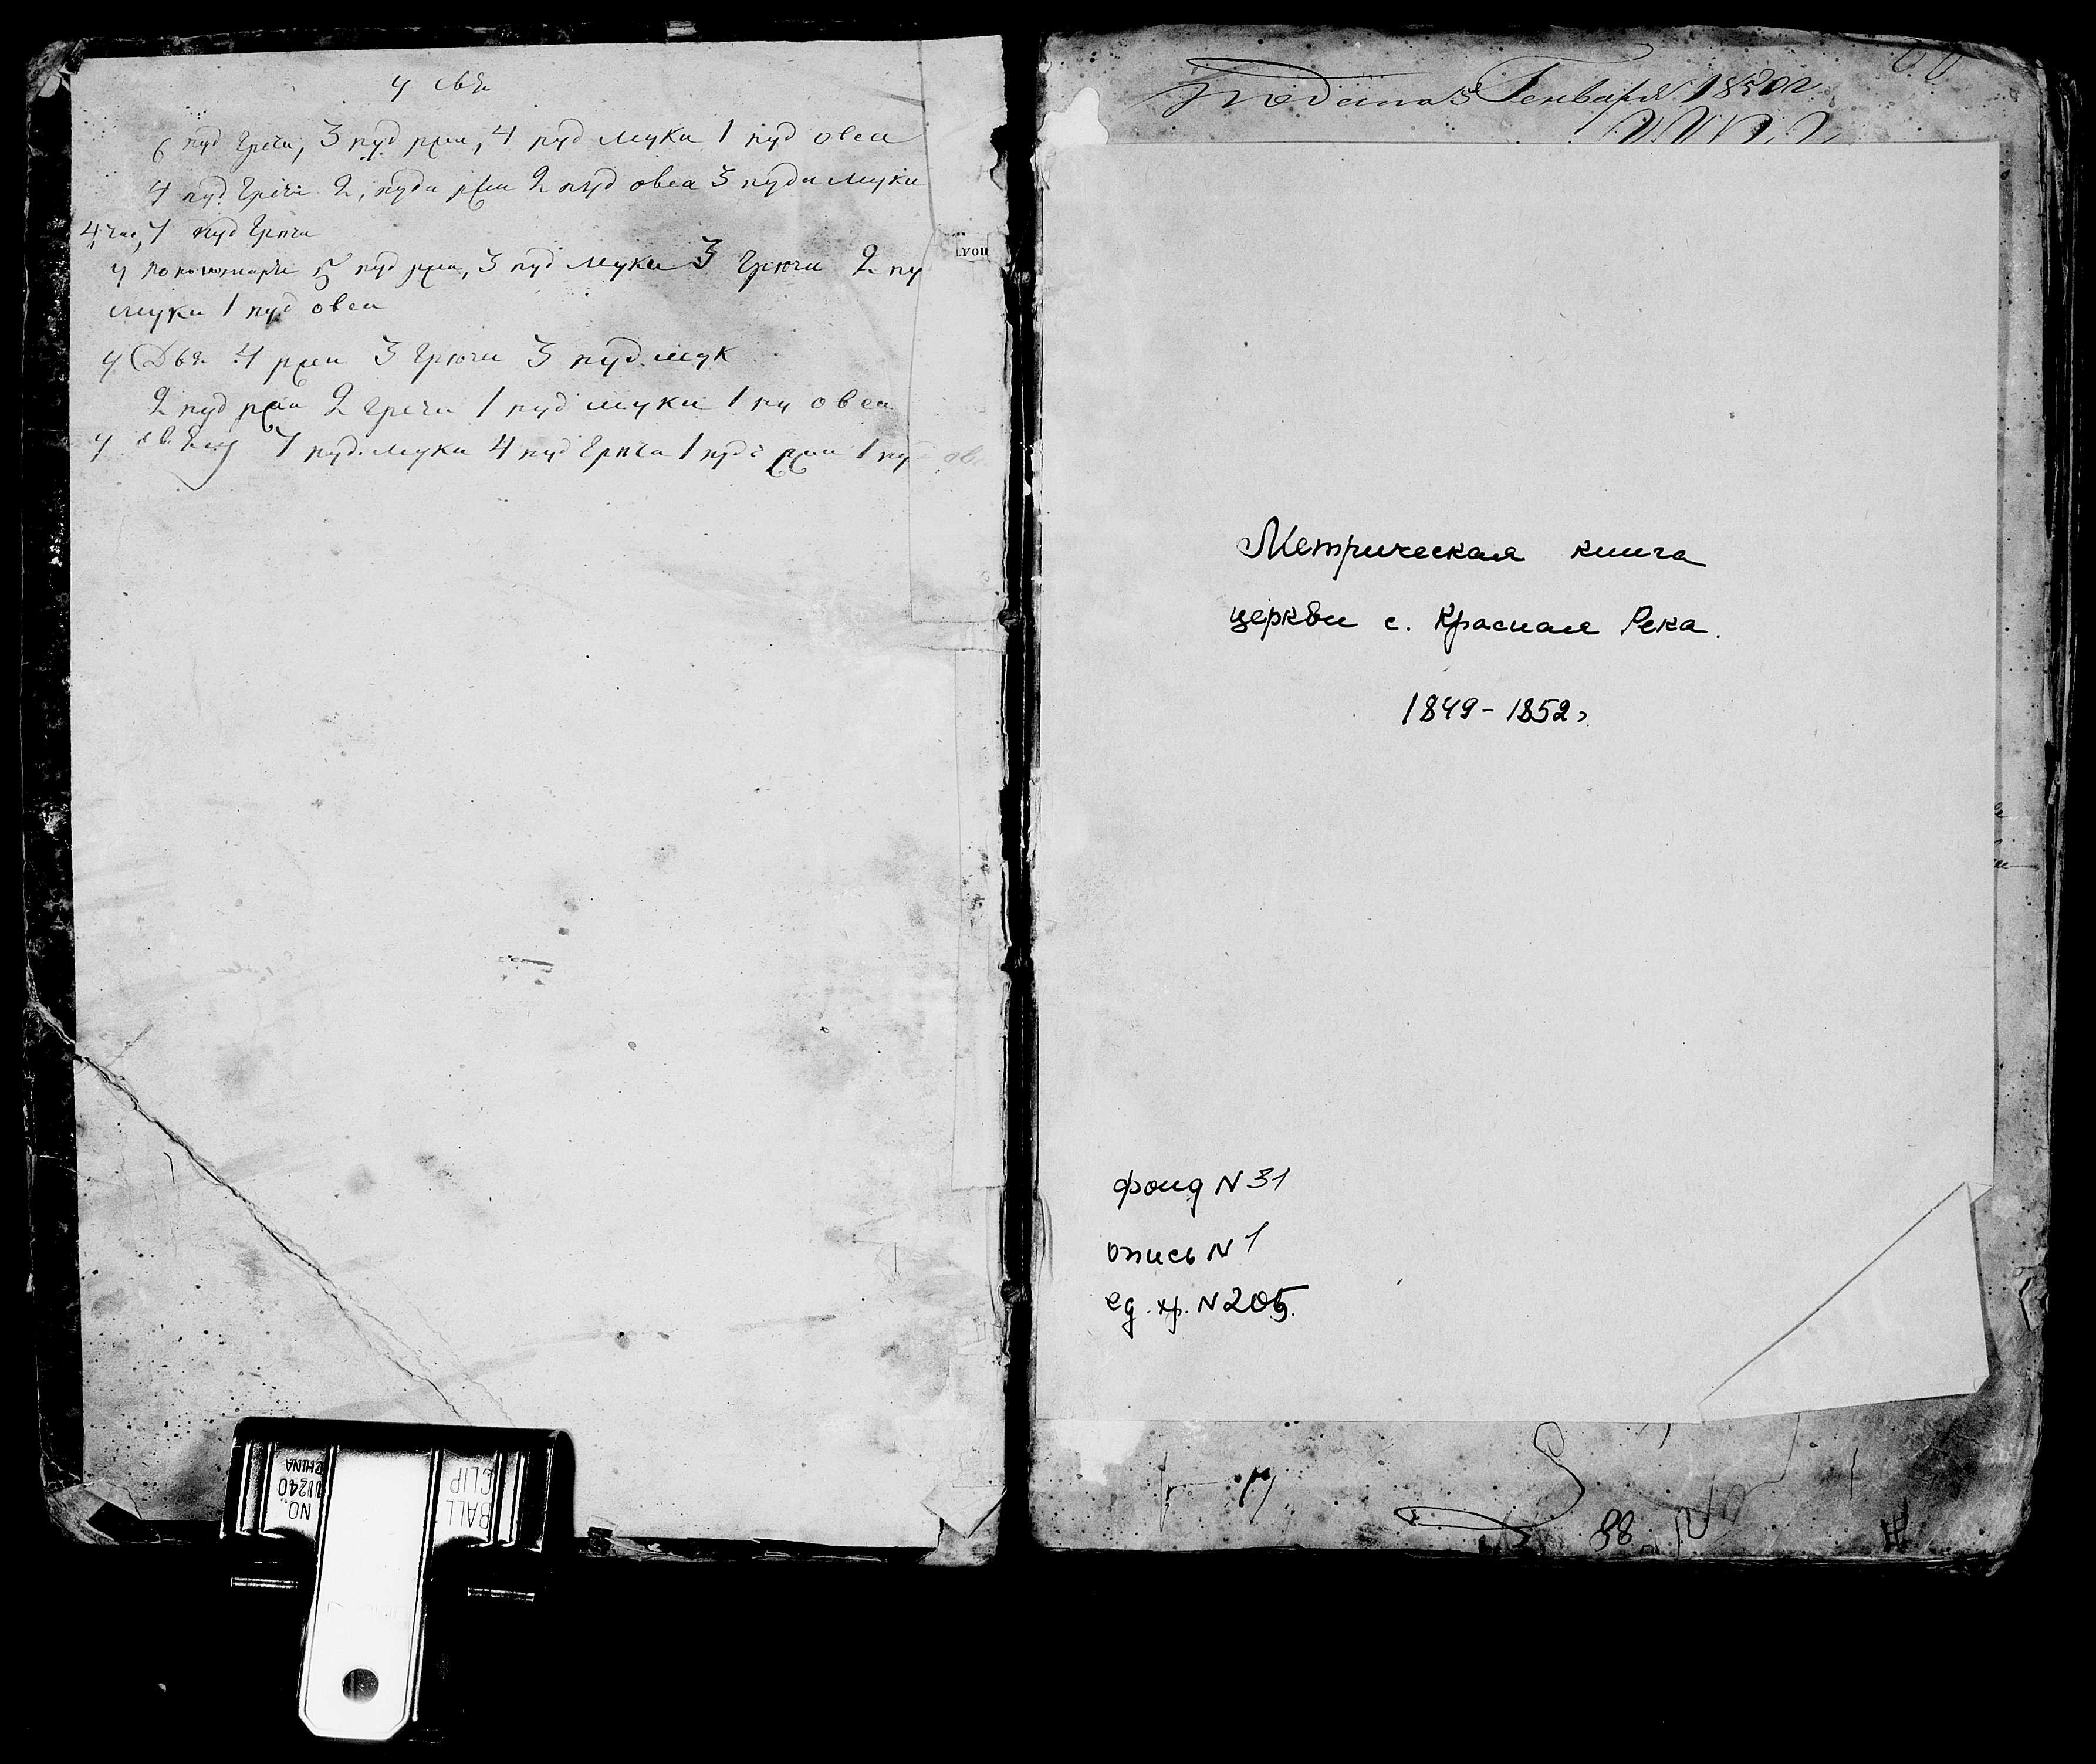 у свя
6 пуд Гречи, 3 пуд ржи, 4 пуд муки 1 пуд овса
4 пуд Гречи 2, пуда ржи 2 пуд овса 3 пуда муки
4, час, 1 пуд Гричи
у пономаря 5 пуд ржи, 3 пуд муки 3 Гречи 2 пу
муки 1 пуд овса
у Дья 4 ржи 3 Гречи 3 пуд. мук
2 пуд ржи 2 Гречи 1 пуд муки 1 пу овса
у 7 пуд. муки 4 пуд Гричи 1 пуд ржи 1 пу ов
Генваря 1850 г
Метрическая книга
церкви с. Красная Река.
1849 - 1852 г.
фонд N 31
опись N 1
ед. хр. N 205.
88
NO. 11240
CHINA
BALL
CLIP